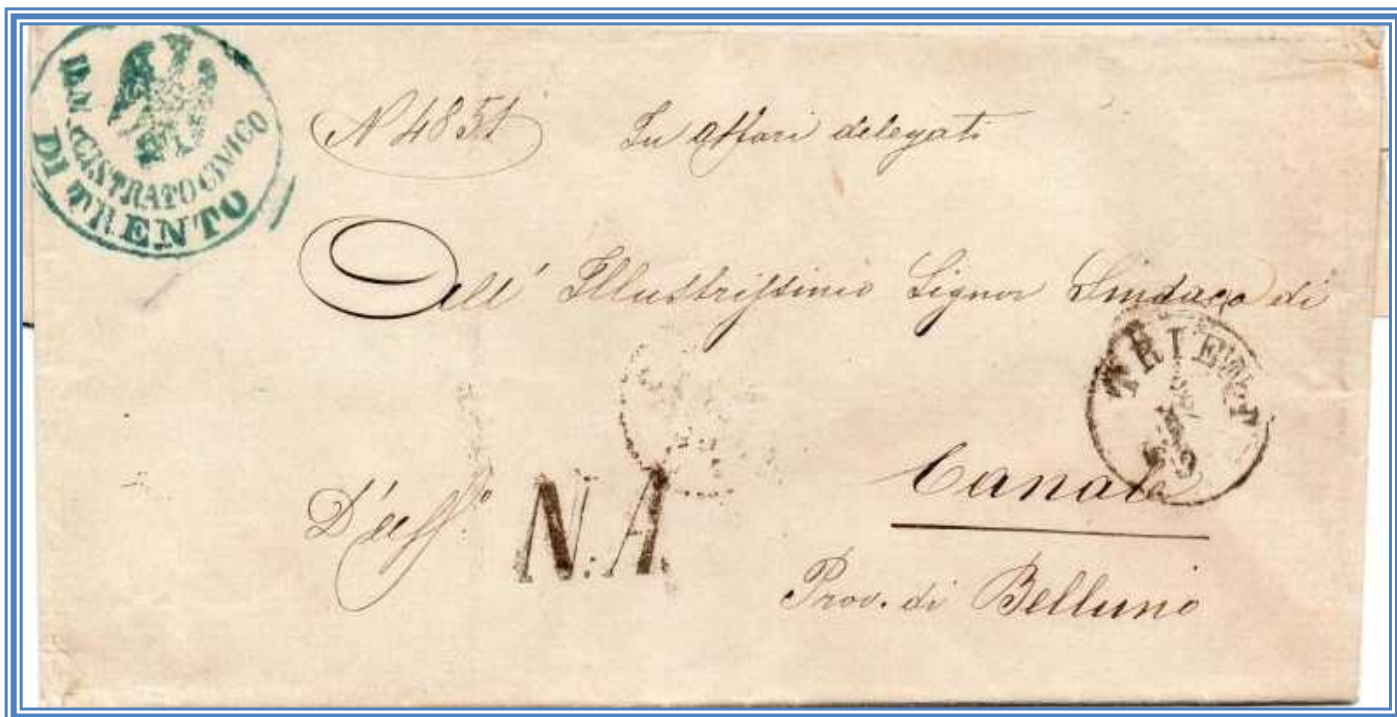 IL MAGISTRATO CIVICO
DI TRENTO
N 4851 In affari delegati
All' Illustrissimo Signor Sindaco di
TRIENT
Canale
D'uff.o N.A.
Prov. di Belluno